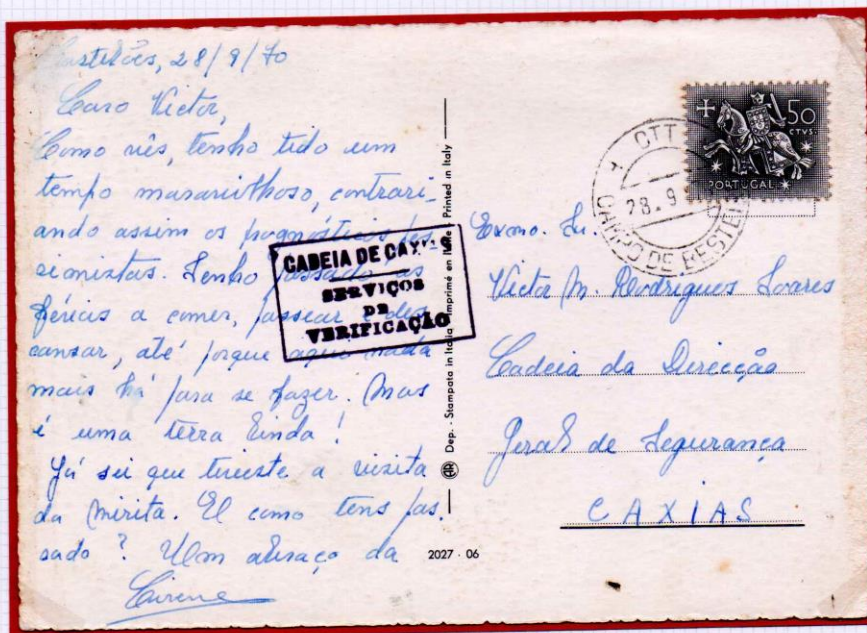 28/9/70
Caro Victor,
Como vês, tenho tido um
tempo maravilhoso, contrari-
ando assim os prognósticos pes-
simistas. Tenho passado as
férias a comer, passear e des-
cansar, até porque aqui nada
mais há para se fazer. Mas
é uma terra linda!
Já sei que tiveste a visita
da Mirita. E como tens pas-
sado? Um abraço da
CADEIA DE CAXIAS
SERVIÇOS
DE
VERIFICAÇÃO
Dep. - Stampata in Italia - Imprimé en Italie - Printed in Italy
2027 - 06
50
CTVS.
PORTUGAL
CTT
28.9
CAMPO DE BESTEI
Exmo. Sr.
Victor M. Rodrigues Soares
Cadeia da Direcção
Geral de Segurança
CAXIAS